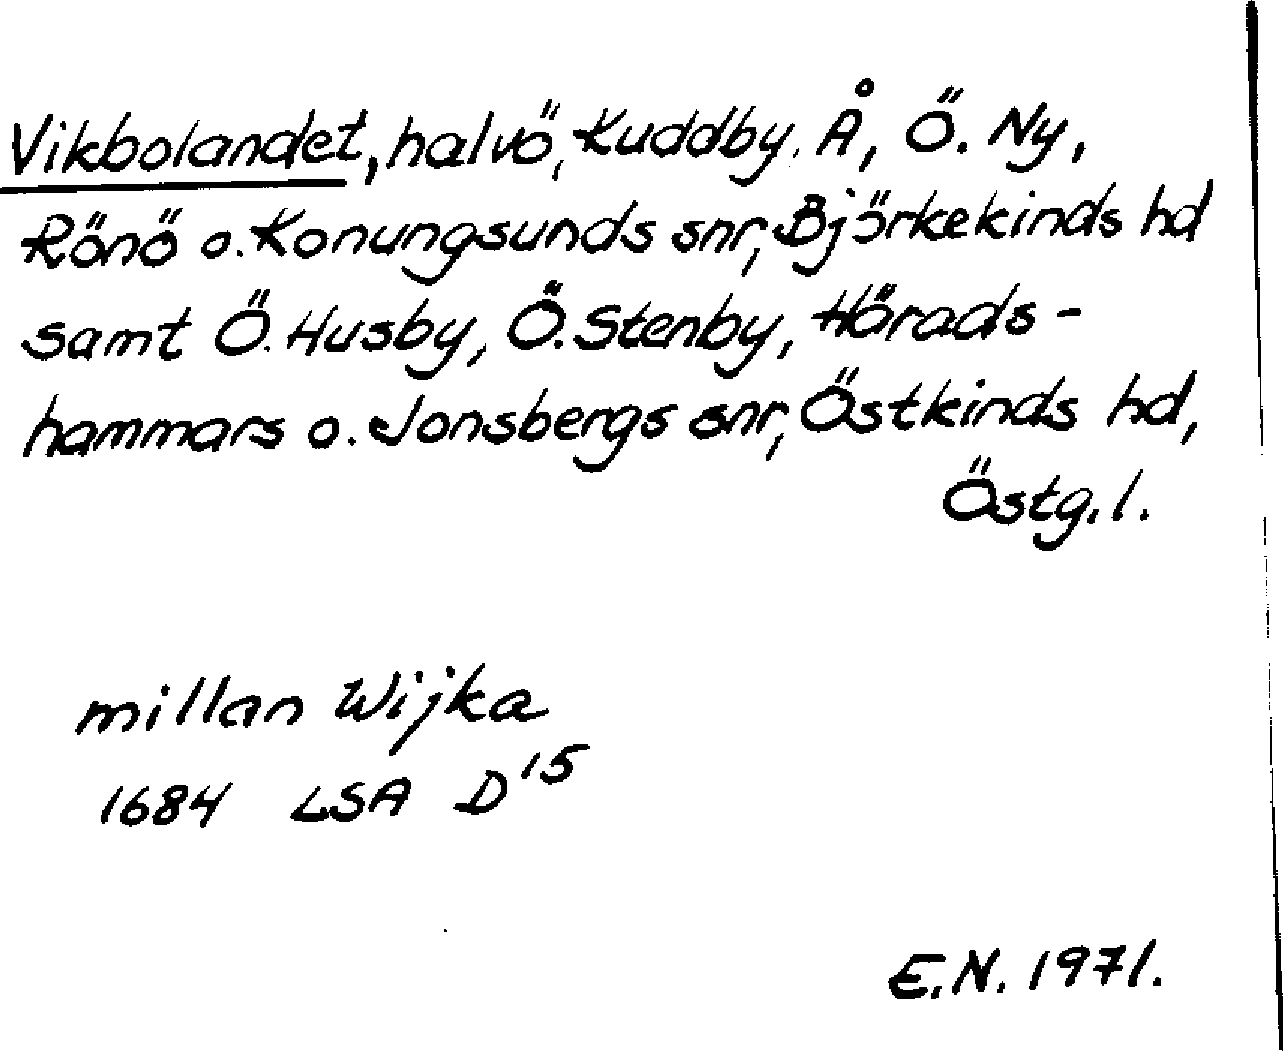 Vikbolandet, halvö, Kuddby, Å, Ö. Ny,
Rönö o. Konungsunds snr, Björkekinds hd
samt Ö. Husby, Ö. Stenby, Härads-
hammars o. Jonsbergs snr, Östkinds hd,
Östg. l.
millan Wijka
1684 LSA D 15
E.N. 1971.